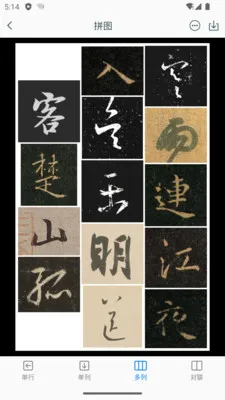 5:14
拼图
寒雨連江夜
入吴平明送
客楚山孤
单行 单列 多列 对联